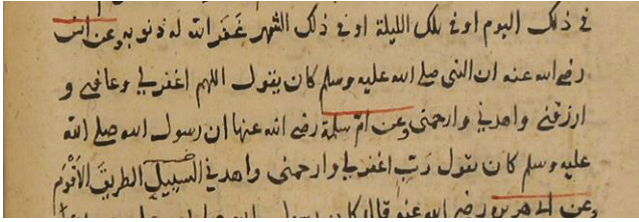 في ذلك اليوم او في تلك الليلة او في ذلك الشهر غفر الله له ذنوبه وعن انس
رضي الله عنه ان النبي صلى الله عليه وسلم كان يقول اللهم اغفر لي وعافني و
ارزقني واهدني وارحمني وعن ام سلمة رضي الله عنها ان رسول الله صلى الله
عليه وسلم كان يقول رَبّ اغفر لي وارحمني واهدني السبيل الطريق الاَقْوَم
وعن ابي هريرة رضي الله عنه قال كان رسول الله صلى الله عليه